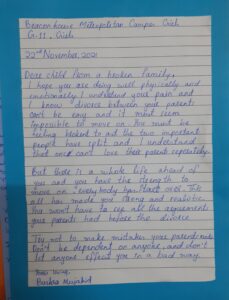 Beaconhouse Metropolitan Campus Girls
G-11, Girls
22nd November, 2021
Dear child from a broken family,
I hope you are doing well physically and
emotionally. I understand your pain and
I know divorce between your parents
can't be easy and it must seem
impossible to move on. You must be
feeling blocked as the two important
people have split and I understand
that once can't love their parent separately.
But there is a whole life ahead of
you and you have the strength to
move on. Everybody has start over. This
all has made you strong and realistic.
You won't have to see all the agreements
your parents had before the divorce.
Try not to make mistakes your parents made
Don't be dependent on anyone, and don't
let anyone effect you in a bad way.
Yours loving,
Bushra Mujahid